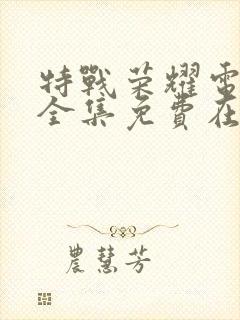 特戰荣耀電
全集免費在
農慧芳